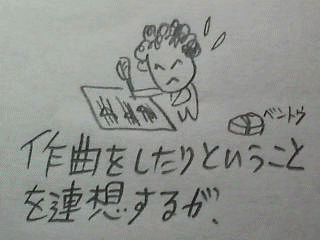 ベントウ
作曲をしたりということ
を連想するが、